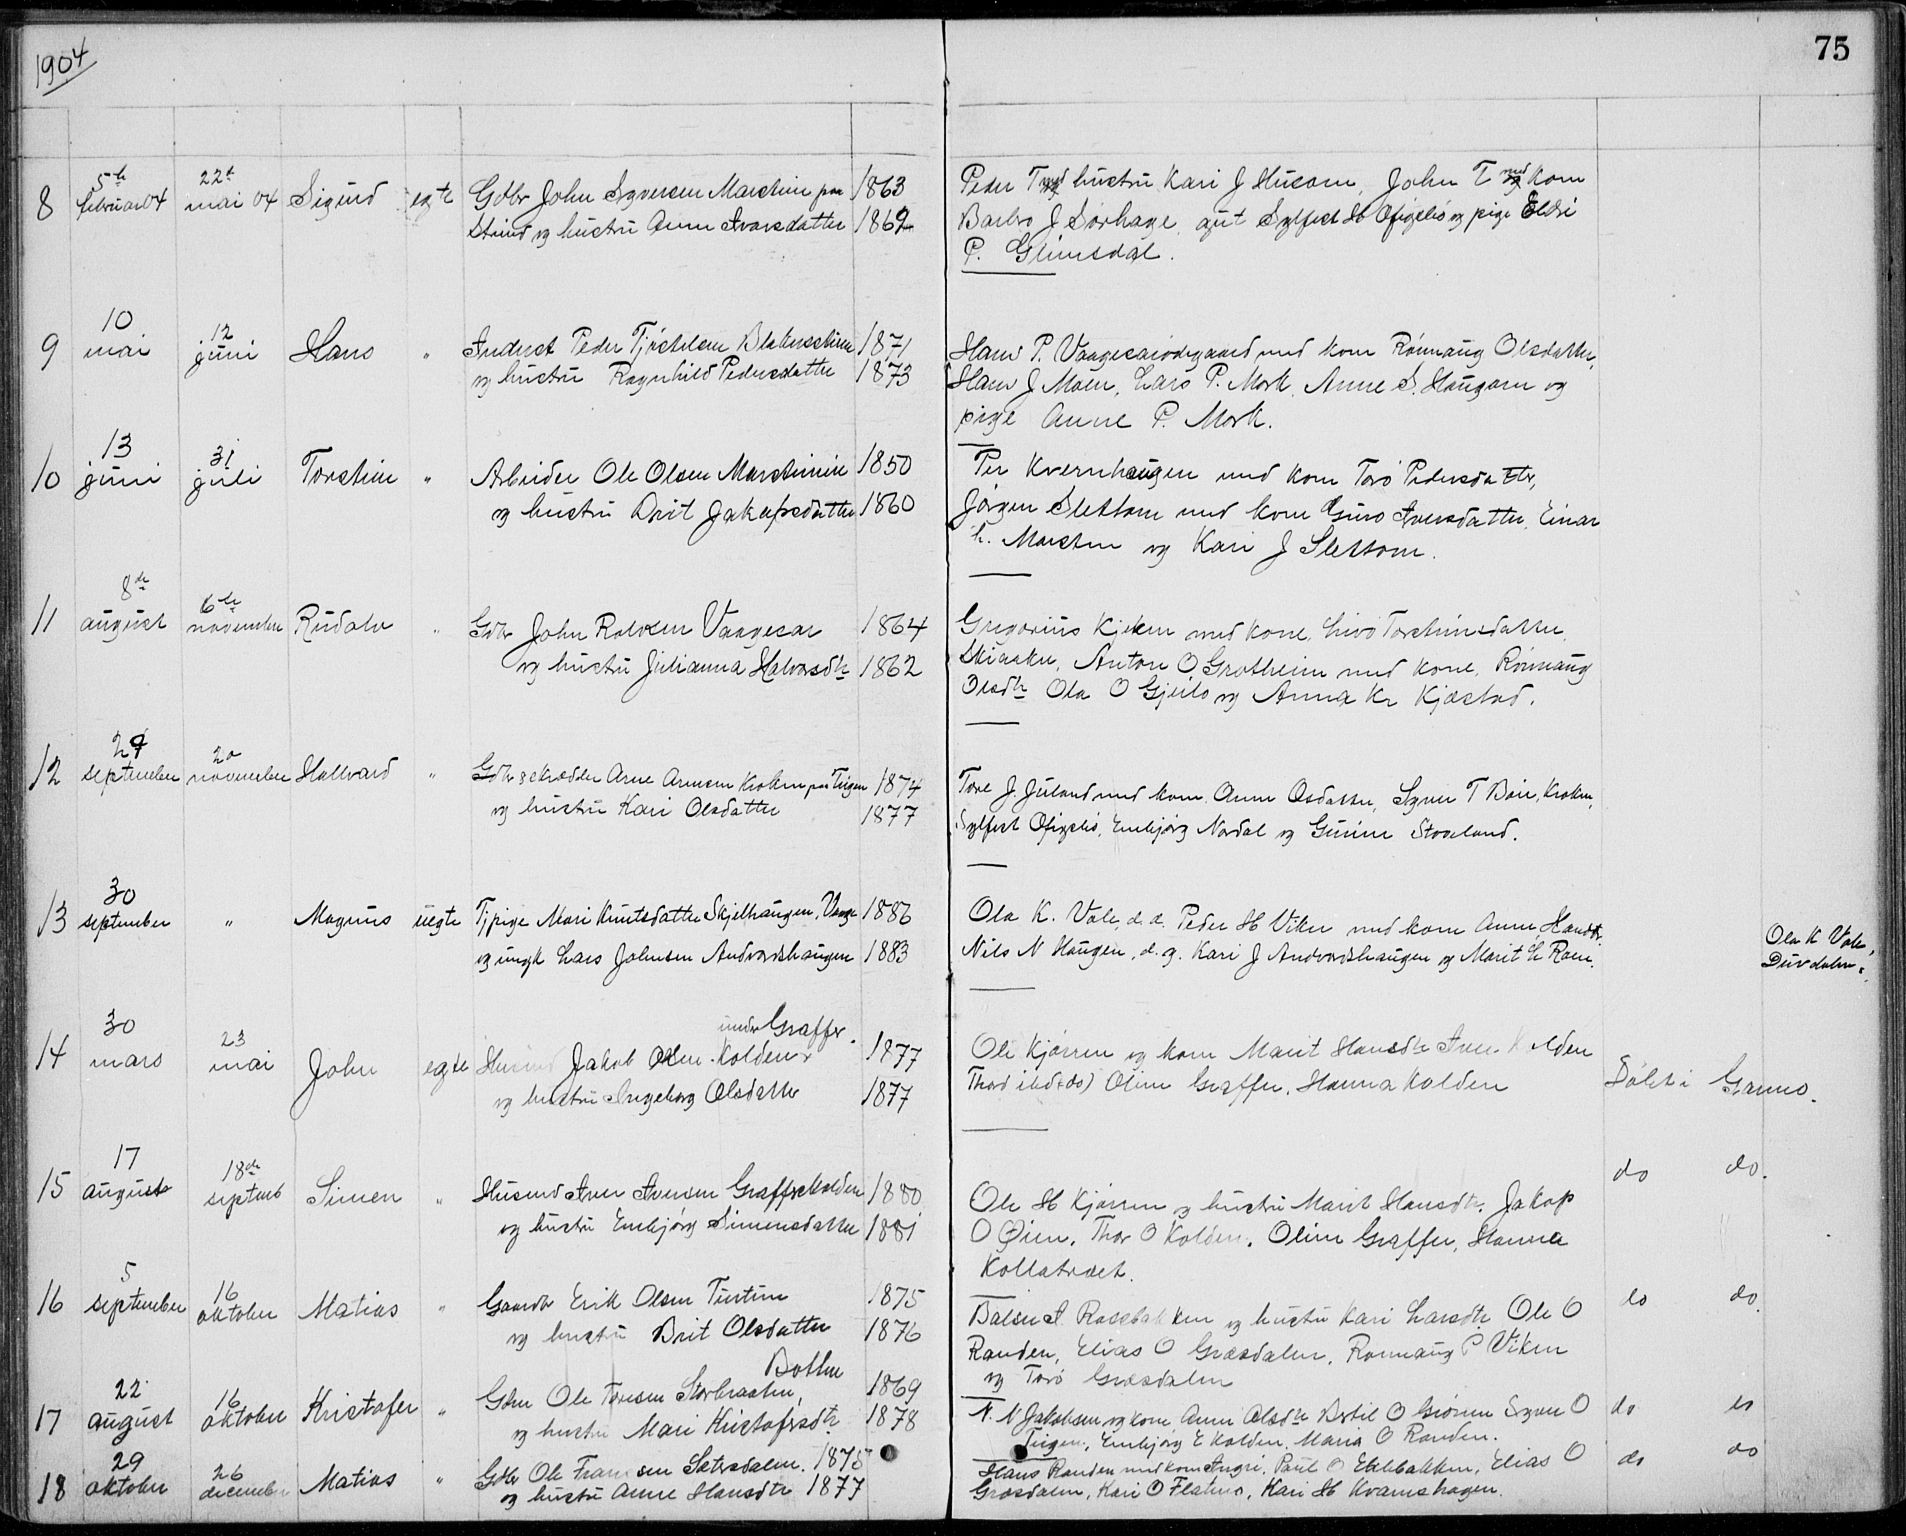 1904
75
8 5te februar 04 22de mai 04 Sigurd egte Gdbr John Syversen Marstein paa 1863
Strind og hustru Anne Ivarsdatter 1862
Peder T med hustru Kari J Husom, John T med kone
Barbro J Sørhage, gut Sylfest H Øfigeli og pige Eldri
P. Glimsdal.
9 10 mai 12 juni Hans " Inderst Peder Tjøstelsen 1871
og hustru Ragnhild Pedersdatter 1873
Hans P. Vaagesarødegaard med kone Rønnaug Olsdatter,
Hans J Moen, Lars P. Mork, Anne S. Haugom og
pige Anne P. Mork.
10 13 juni 31 juli Torstein " Arbeider Ole Olsen Marsteinein 1850
og hustru Brit Jakupsdatter 1860
Per Kvernhaugen med kone Torø Pedersdatter,
Jørgen Slettom med kone Guro Iversdatter, Einar
h. Marstein og Kari J Slettom.
11 8de august 6te november Rudolv " Gdbr John Rolvsen Vaagesar 1864
og hustru Julianna Halvorsdtr 1862
Gregorius Kjeken med kone, Livø Torsteinsdatter,
Skiaaker, Anton O Grotheim med kone, Rønnaug
Olsdtr Ola O Gjeilo og Anna Kr Kjæstad.
12 29 september 20 november Hallvard " Gdbr skrædder Arne Arnesen Kroken paa Teigen 1874
og hustru Kari Olsdatter 1877
Tore J. Juland med kone Anne Osdatter, Syver T Bøie, Kroken,
Sylfest Øfigeli, Embjørg Nordal og Gurine Stoveland.
13 30 september " Magnus uegte Tj pige Mari Knutsdatter Skjelhaugen, Vaage 1886
og ungk Lars Johnsen Andvordshaugen 1883
Ola K. Vole, d.d. Peder H Viken med kone Anne Hansdtr,
Nils N Haugen, d.g. Kari J Andvordshaugen og Marit L Ram.
Ola K Vole,
Duvdalen.
14 30 mars 23 mai John egte Husmd Jakob Olsen Kolden under Graffer. 1877
og hustru Ingeborg Olsdatter 1877
Ole Kjørren og kone Marit Hansdtr Iver Kolden
Thord ibd (do) Oline Graffer, Hanna Kolden
Døbt i Garmo.
15 17 august 18de septemb Simen " Husmd Iver Iversen Grafferkolden 1880
og hustru Embjørg Simensdatter 1881
Ole H Kjørren og hustru Marit Hansdtr, Jakop
O Øien, Thor O Kolden, Oline Graffer, Hanna
Kollatræet.
do do.
16 5 september 16 oktober Matias " Gaardbr Erik Olsen Turtein 1875
og hustru Brit Olsdatter 1876
og hustru Kari Larsdtr Ole O
Randen, Elias O Græsdalen, Rønnaug P Viken
og Torø Græsdalen
do do.
17 22 august 16 oktober Kristofer " Gdbr Ole Toresen Storbraaten, Bollm 1869
og hustru Mari Kristofersdtr 1878
N. N Jakobsen og kone Anne Olsdtr Bertil O Grønn Syver O
Teigen, Embjørg E Kolden, Maria O Randen.
do do
18 29 oktober 26 december Matias " Gdbr Ole Fransen Sætersdalen 1875
og hustru Anne Hansdtr 1877
Hans Randen med kone Ingri, Paul O Eklebakken, Elias O
Græsdalen, Kari O Flatmo, Kari H Kvamshagen.
do do